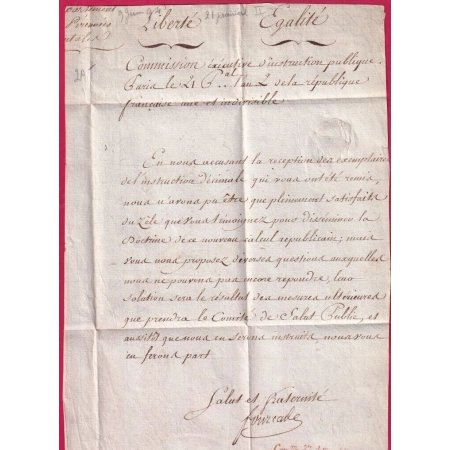 9 juin 94 21 prairial II
Liberté Egalité
Pirenées
Commission exécutive d'instruction publique.
Paris le 21 P..al l'an 2 de la république
française une et indivisible
En nous accusant la reception des exemplaires
de l'instruction décimale qui vous ont été remis,
nous n'avons pu être que pleinement satisfaits
du zèle que vous témoignez pour disseminer la
Doctrine de ce nouveau calcul republicain; mais
vous nous proposez diverses questions auxquelles
nous ne pouvons pas encore repondre, leur
solution sera le résultat des mesures ultérieures
que prendra le Comité de Salut Public, et
aussitôt que nous en serons instruits, nous vous
en ferons part.
Salut et fraternité
fourcade